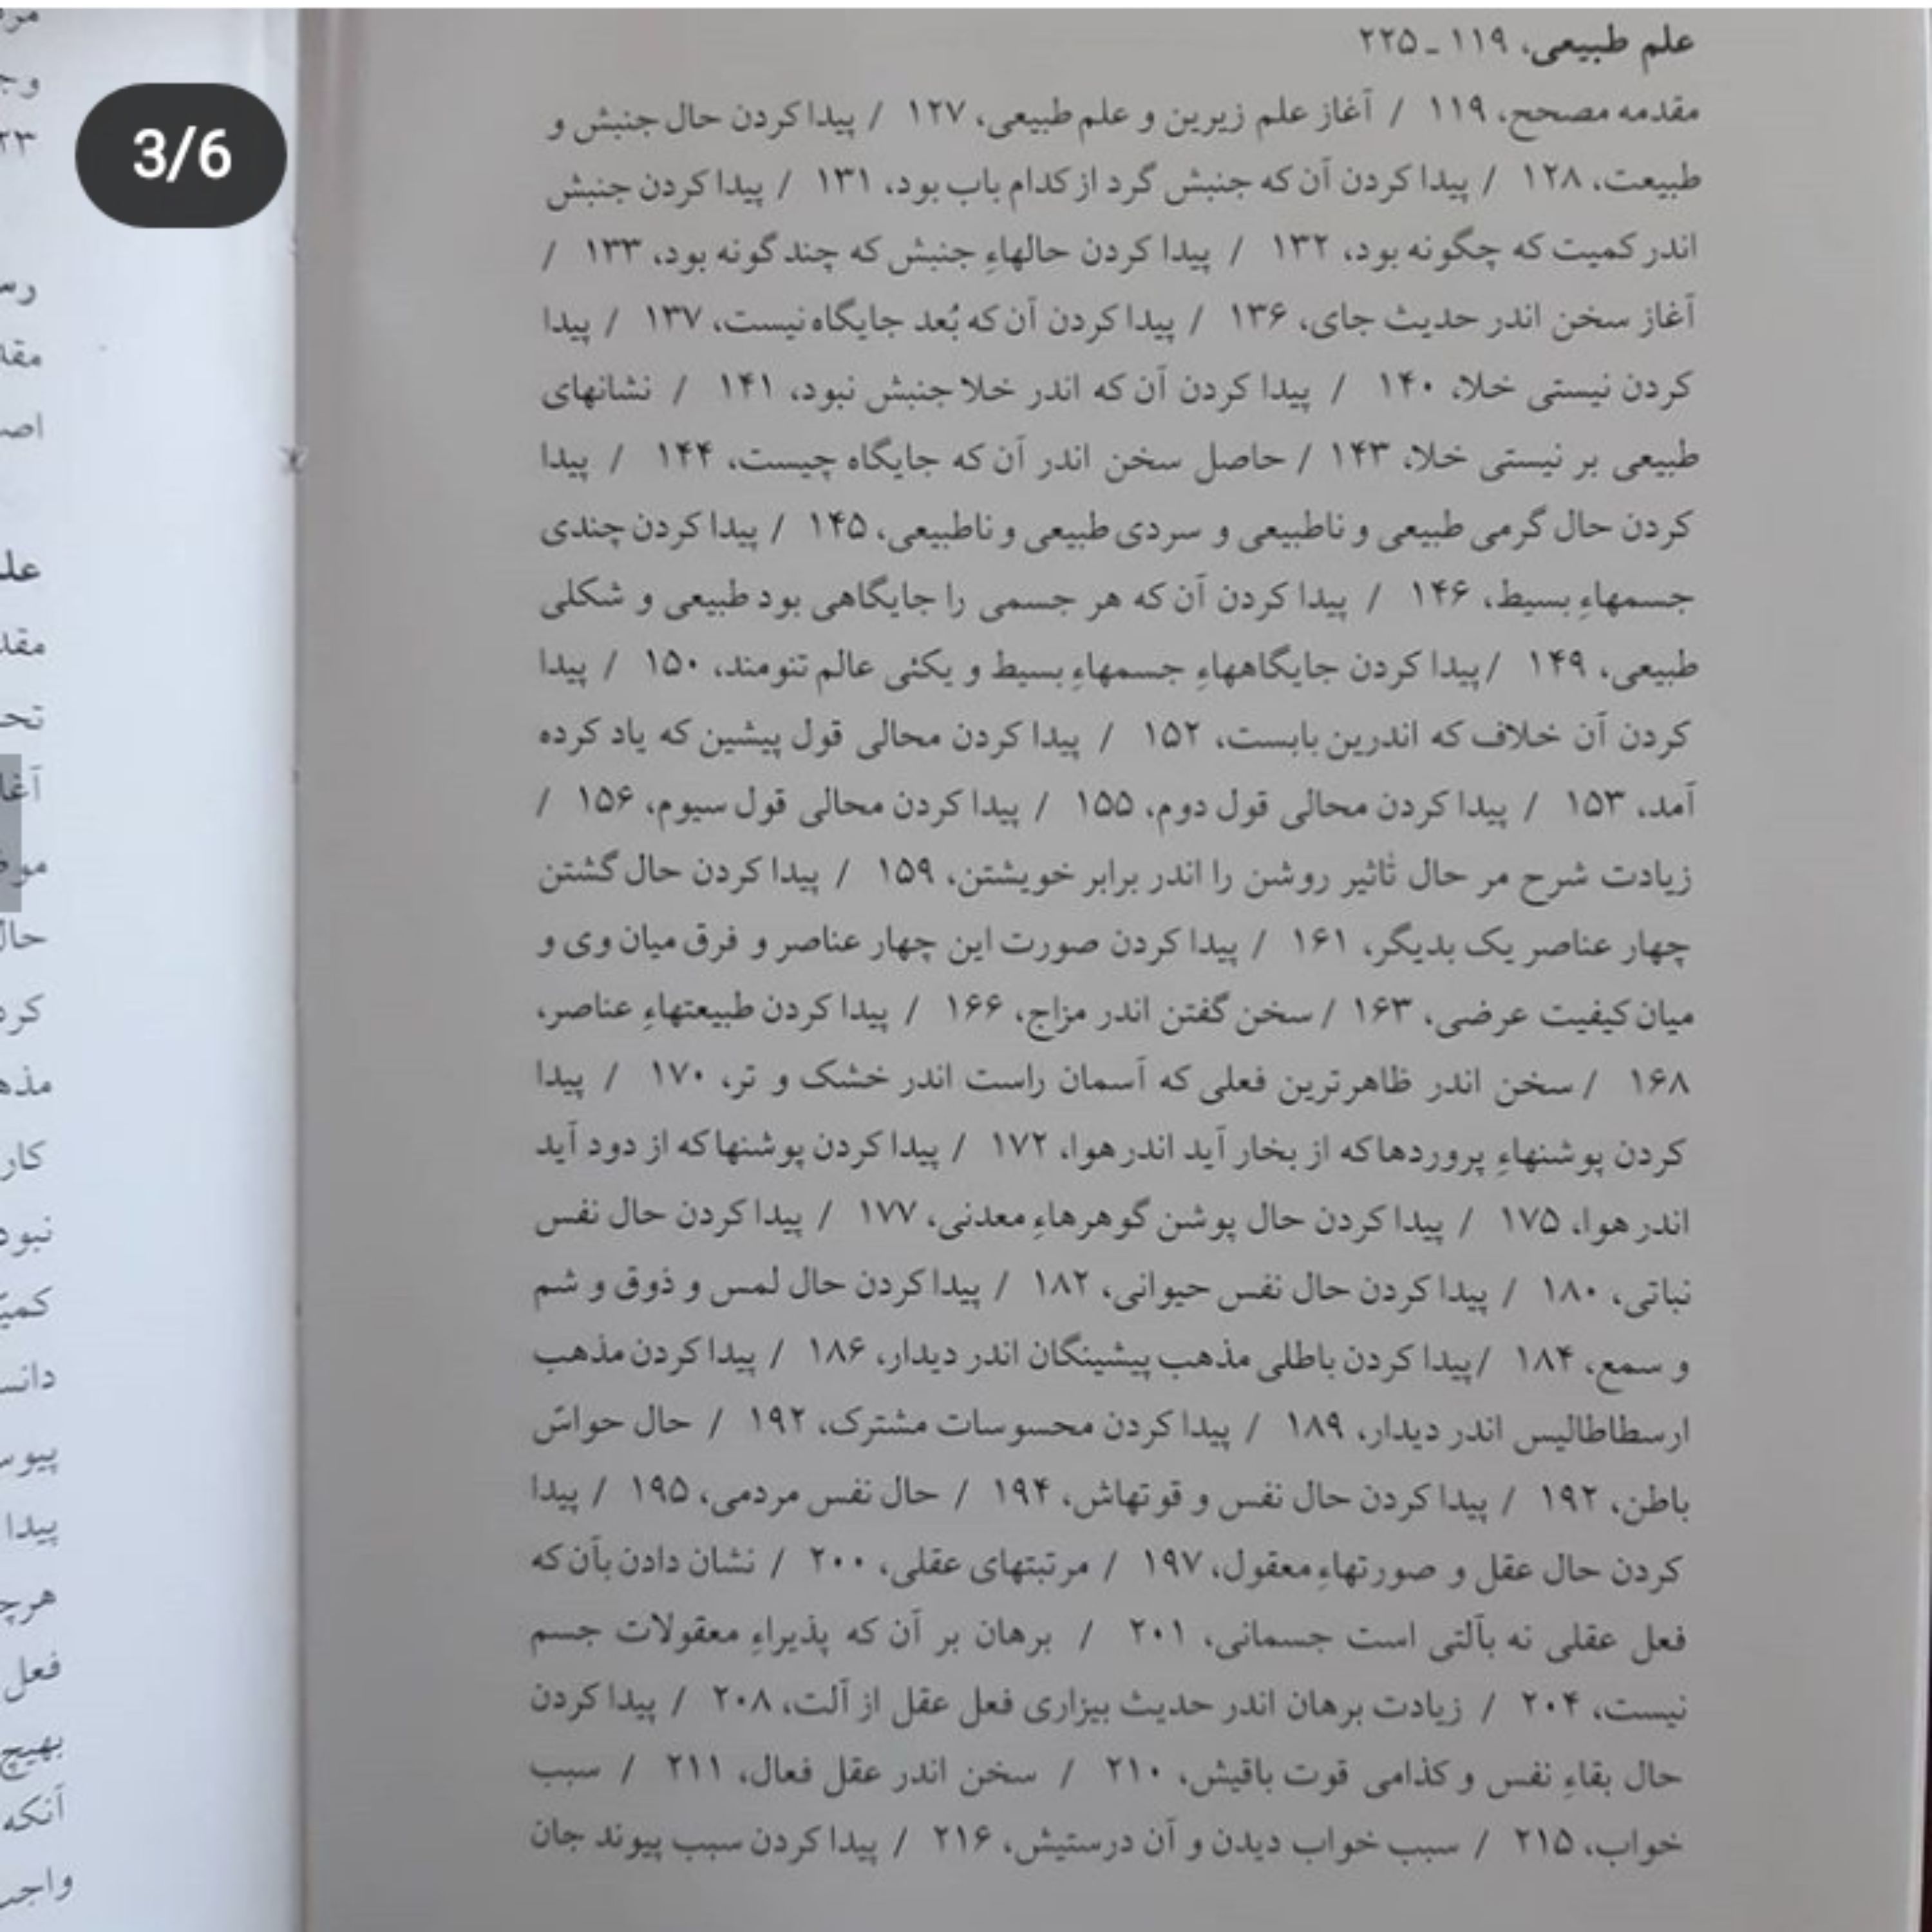 علم طبیعی، ۱۱۹ ـ ۲۲۵
مقدمه مصحح، ۱۱۹ / آغاز علم زیرین و علم طبیعی، ۱۲۷ / پیدا کردن حال جنبش و
طبیعت، ۱۲۸ / پیدا کردن آن که جنبش گرد از کدام باب بود، ۱۳۱ / پیدا کردن جنبش
اندر کمیت که چگونه بود، ۱۳۲ / پیدا کردن حالهاءِ جنبش که چند گونه بود، ۱۳۳ /
آغاز سخن اندر حدیث جای، ۱۳۶ / پیدا کردن آن که بُعد جایگاه نیست، ۱۳۷ / پیدا
کردن نیستی خلا، ۱۴۰ / پیدا کردن آن که اندر خلا جنبش نبود، ۱۴۱ / نشانهای
طبیعی بر نیستی خلا، ۱۴۳ / حاصل سخن اندر آن که جایگاه چیست، ۱۴۴ / پیدا
کردن حال گرمی طبیعی و ناطبیعی و سردی طبیعی و ناطبیعی، ۱۴۵ / پیدا کردن چندی
جسمهاءِ بسیط، ۱۴۶ / پیدا کردن آن که هر جسمی را جایگاهی بود طبیعی و شکلی
طبیعی، ۱۴۹ / پیدا کردن جایگاههاءِ جسمهاءِ بسیط و یکئی عالم تنومند، ۱۵۰ / پیدا
کردن آن خلاف که اندرین بابست، ۱۵۲ / پیدا کردن محالی قول پیشین که یاد کرده
آمد، ۱۵۳ / پیدا کردن محالی قول دوم، ۱۵۵ / پیدا کردن محالی قول سیوم، ۱۵۶ /
زیادت شرح مر حال تٔاثیر روشن را اندر برابر خویشتن، ۱۵۹ / پیدا کردن حال گشتن
چهار عناصر یک بدیگر، ۱۶۱ / پیدا کردن صورت این چهار عناصر و فرق میان وی و
میان کیفیت عرضی، ۱۶۳ / سخن گفتن اندر مزاج، ۱۶۶ / پیدا کردن طبیعتهاءِ عناصر،
۱۶۸ / سخن اندر ظاهرترین فعلی که آسمان راست اندر خشک و تر، ۱۷۰ / پیدا
کردن پوشنهاءِ پروردها که از بخار آید اندر هوا، ۱۷۲ / پیدا کردن پوشنها که از دود آید
اندر هوا، ۱۷۵ / پیدا کردن حال پوشن گوهرهاءِ معدنی، ۱۷۷ / پیدا کردن حال نفس
نباتی، ۱۸۰ / پیدا کردن حال نفس حیوانی، ۱۸۲ / پیدا کردن حال لمس و ذوق و شم
و سمع، ۱۸۴ / پیدا کردن باطلی مذهب پیشینگان اندر دیدار، ۱۸۶ / پیدا کردن مذهب
ارسطاطالیس اندر دیدار، ۱۸۹ / پیدا کردن محسوسات مشترک، ۱۹۲ / حال حواسّ
باطن، ۱۹۲ / پیدا کردن حال نفس و قوتهاش، ۱۹۴ / حال نفس مردمی، ۱۹۵ / پیدا
کردن حال عقل و صورتهاءِ معقول، ۱۹۷ / مرتبتهای عقلی، ۲۰۰ / نشان دادن بآن که
فعل عقلی نه بآلتی است جسمانی، ۲۰۱ / برهان بر آن که پذیراءِ معقولات جسم
نیست، ۲۰۴ / زیادت برهان اندر حدیث بیزاری فعل عقل از آلت، ۲۰۸ / پیدا کردن
حال بقاءِ نفس و کذامی قوت باقیش، ۲۱۰ / سخن اندر عقل فعال، ۲۱۱ / سبب
خواب، ۲۱۵ / سبب خواب دیدن و آن درستیش، ۲۱۶ / پیدا کردن سبب پیوند جان
3/6